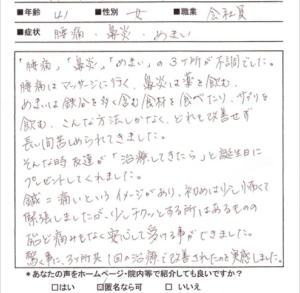 ■年齢 41 ■性別 女 ■職業 会社員
■症状 腰痛・鼻炎・めまい
「腰痛」、「鼻炎」、「めまい」の3ヶ所が不調でした。
腰痛はマッサージに行く、鼻炎は薬を飲む、
めまいは鉄分を多く含む食材を食べたり、サプリを
飲む、こんな方法しかなく、どれも改善せず
長い間苦しめられてきました。
そんな時友達が「治療してきたら」と誕生日に
プレゼントしてくれました。
鍼=痛いというイメージがあり、初めは少し怖くて
緊張しましたが、少しチクッとする所はあるものの
殆ど痛みもなく安心して受ける事ができました。
驚く事に、3ヶ所共1回の治療で改善されたのを実感しました。
*あなたの声をホームページ・院内等で紹介しても良いですか?
□はい ☑匿名なら可 □いいえ